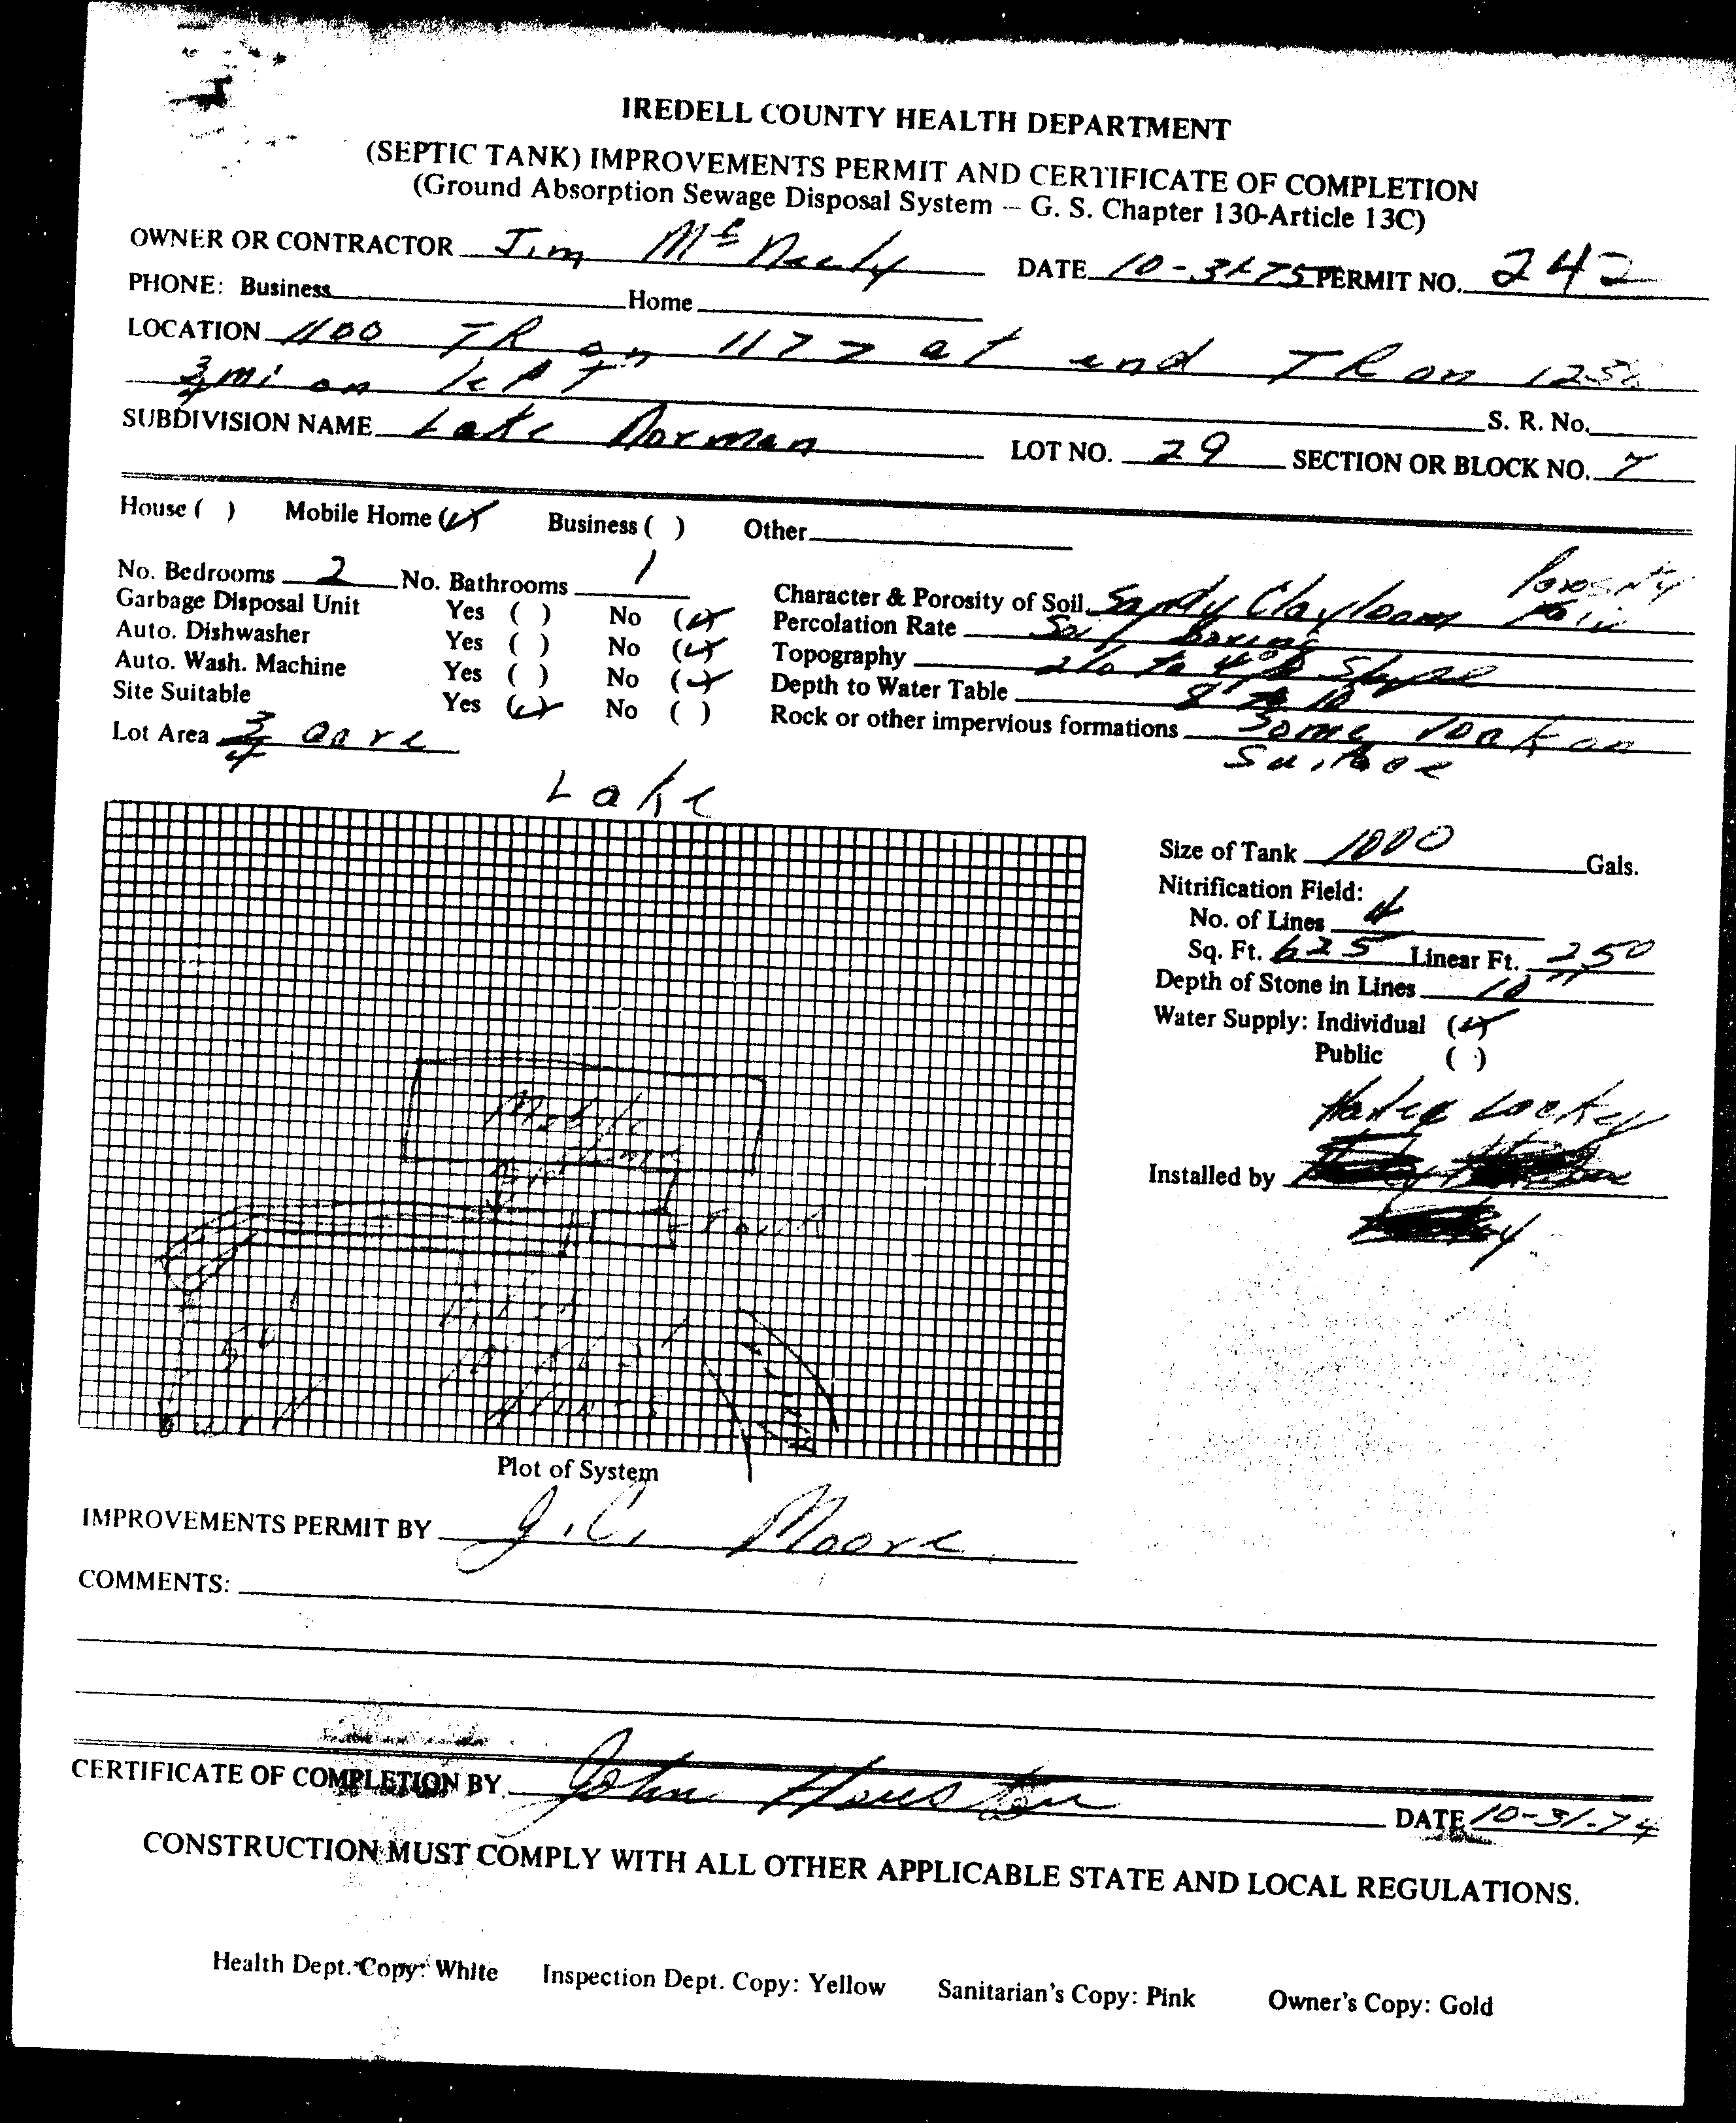 IREDELL COUNTY HEALTH DEPARTMENT
(SEPTIC TANK) IMPROVEMENTS PERMIT AND CERTIFICATE OF COMPLETION
(Ground Absorption Sewage Disposal System -- G. S. Chapter 130-Article 13C)
OWNER OR CONTRACTOR Jim McNeely DATE 10-31-75 PERMIT NO. 242
PHONE: Business Home
LOCATION 1100 TR on 1177 at end TR on
3/4 mi on left S. R. No.
SUBDIVISION NAME Lake Norman LOT NO. 29 SECTION OR BLOCK NO. 7
House ( ) Mobile Home (✓) Business ( ) Other
No. Bedrooms 2 No. Bathrooms 1
Garbage Disposal Unit Yes ( ) No (✓)
Auto. Dishwasher Yes ( ) No (✓)
Auto. Wash. Machine Yes ( ) No (✓)
Site Suitable Yes (✓) No ( )
Lot Area 3/4 acre
Character & Porosity of Soil Sandy Clay loam Porosity Fair
Percolation Rate Soil boring
Topography 2% to 4% Slope
Depth to Water Table 8' to 10
Rock or other impervious formations Some rock on
Surface
Lake
Size of Tank 1000 Gals.
Nitrification Field:
No. of Lines 4
Sq. Ft. 625 Linear Ft. 250
Depth of Stone in Lines 10"
Water Supply: Individual (✓)
Public ( )
Installed by Locke
Mobile
Home
Tank
50'
well
Plot of System
IMPROVEMENTS PERMIT BY J.C. Moore
COMMENTS:
CERTIFICATE OF COMPLETION BY John Houston DATE 10-31-74
CONSTRUCTION MUST COMPLY WITH ALL OTHER APPLICABLE STATE AND LOCAL REGULATIONS.
Health Dept. Copy: White Inspection Dept. Copy: Yellow Sanitarian's Copy: Pink Owner's Copy: Gold